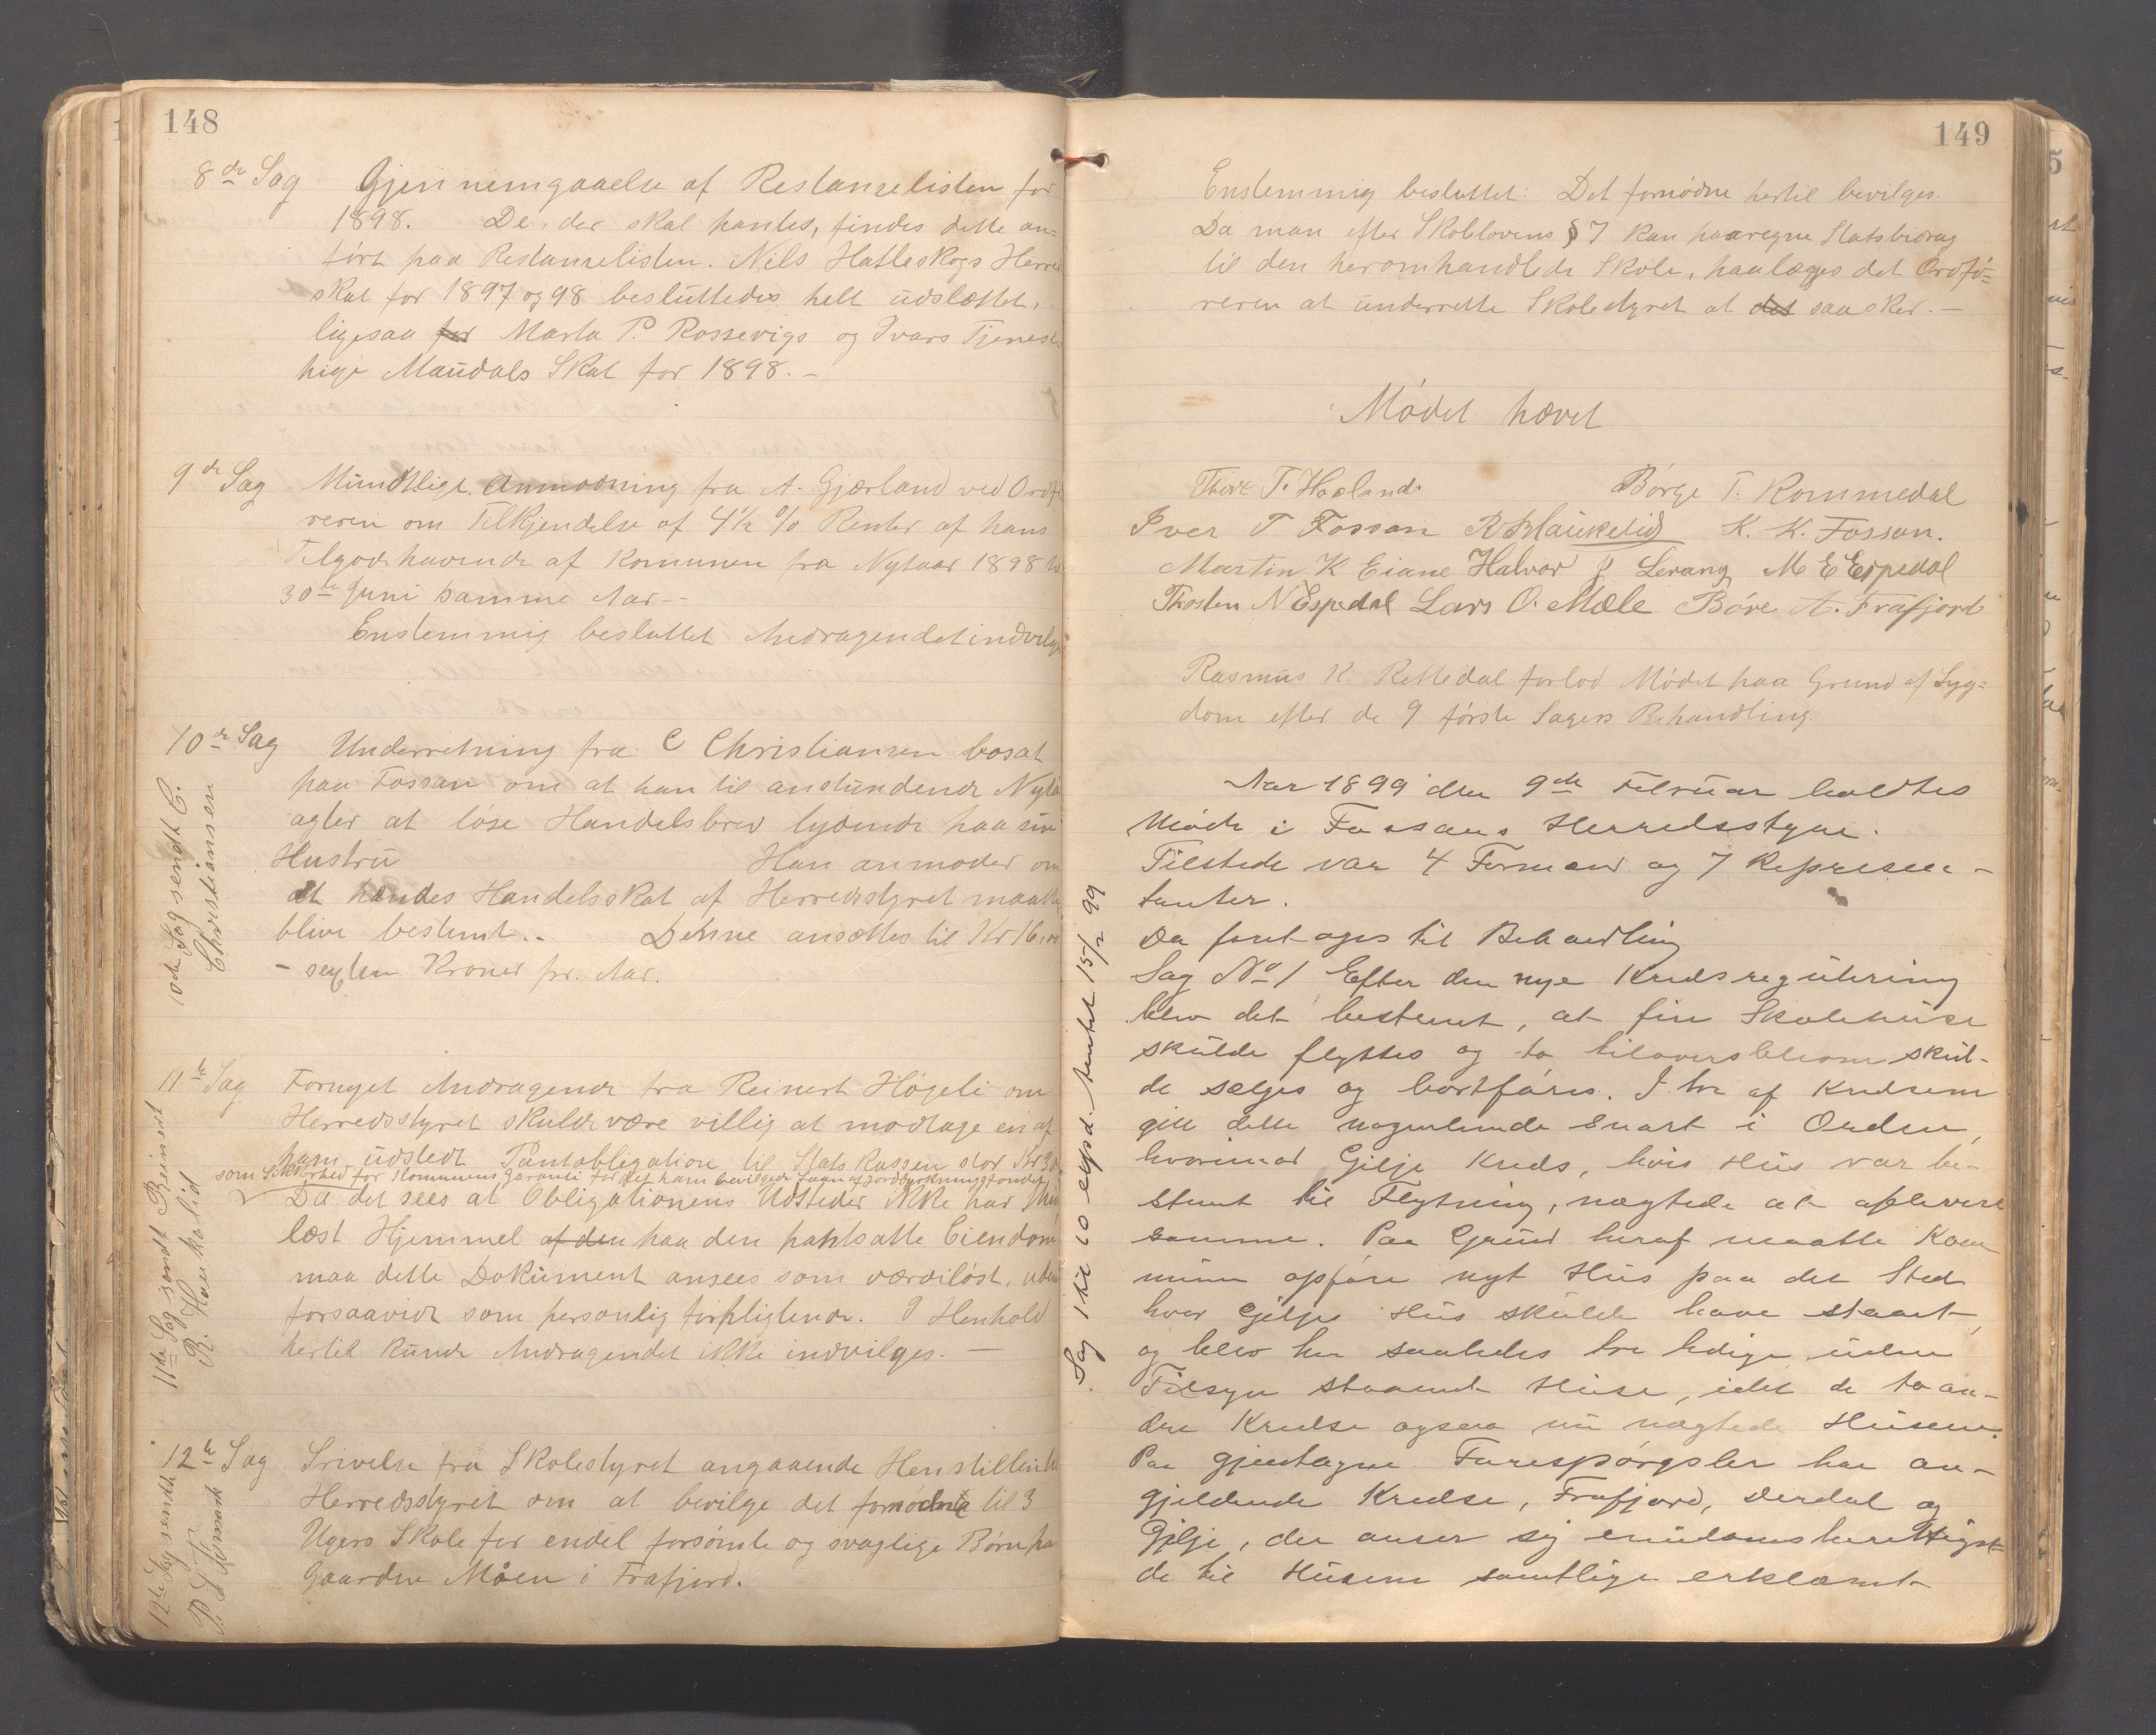 148
8de Sag Gjennemgaaelse af Restanselisten for
1898. De, der skal pantes, findes dette an=
ført paa Restanselisten. Nils Hatleskogs Herred
skat for 1897 og 98 besluttedes helt udslættet,
ligesaa for Marta P. Rossevigs og Ivars Tjeneste
pige Maudals Skat for 1898.-
9de Sag Mundtlige Anmodning fra A. Gjærland ved Ordfø
reren om Tilkjendelse af 4½ % Renter af hans
Tilgodehavende af Komunen fra Nytaar 1898 til
30te Juni samme Aar.-
Enstemmig besluttet Andragendet indvilges
10de Sag Underretning fra C Christiansen bosat
paa Fossan om at han til anstundende Nytaa
agter at løse Handelsbrev lydende paa sin
Hustru Han anmoder om
at hendes Handelsskat af Herredsstyret maatte
blive bestemt.. Denne ansættes til Kr 16,00
- sexten Kroner pr. Aar.
10de Sag sendt C.
Christiansen
11te Sag Fornyet Andragende fra Reinert Høgeli om
Herredsstyret skulde være villig at modtage en af
ham udstedt Pantobligation til Statskassen stor Kr 30
som Sikkerhed for Komunens Garanti for det ham bevilgede Laan af Jorddyrkningsfondet
Da det sees at Obligationens Udsteder ikke har thing
læst Hjemmel af den paa den pantsatte Eiendom
maa dette Dokument ansees som værdiløst, uden
forsaavidt som personlig forpligtende. I Henhold
hertil kunde Andragendet ikke indvilges. -
11te Sag sendt Reinert
R. Haukalid
12te Sag Srivelse fra Skolestyret angaaende Henstillen til
Herredsstyret om at bevilge det fornødne til 3
Ugers Skole for endel forsømte og svaglige Børn paa
Gaarden Måen i Frafjord.
12te Sag sendt
149
Enstemmig besluttet: Det fornødne hertil bevilges.
Da man efter Skolelovens § 7 kan paaregne Statsbidrag
til den heromhandlede Skole, paalægges det Ordfø=
reren at underrette Skolestyret at det saa sker.-
Mødet hævet
Thore T. Haaland. Børge T. Rommedal
Iver T Fossan R Haukelid K. K. Fossan.
Martin K Eiane Halvor J Lerang M E Espedal
Thosten N Espedal Lars O. Mæle Børe A. Frafjord
Rasmus K. Rettedal forlod Mødet paa Grund af Syg=
dom efter de 9 første Sagers Behandling.
Aar 1899 den 9de Februar holdtes
Møde i Fossans Herredsstyre.
Tilstede var 4 Formænd og 7 Represen-
tanter.
Da foretages til Behandling
Sag No 1 Efter den nye Kredsregulering
blev det bestemt, at fire Skolehuse
skulde flyttes og to tiloversblevne skul-
de sælges og bortføres. I tre af Kredsene
gik dette nogenlunde snart i Orden,
hvorimod Gilje Kreds, hvis Hus var be-
stemt til Flytning, nægtede at aflevere
samme. Paa Grund heraf maatte Kom-
munen opføre nyt Hus paa det Sted
hvor Giljes Hus skulde have staaet,
og blev her saaledes tre ledige uden
Tilsyn staaende Huse, idet de to an-
dre Kredse ogsaa nu nægtede Husene.
Paa gjentagne Forespørgsler har an-
gjeldende Kredse, Frafjord, Dirdal og
Gilje, der anser sig eiendomsberettiget-
de til Husene samtlige erklæret
Sag 1 til 10 expd. sendt 15/2 99